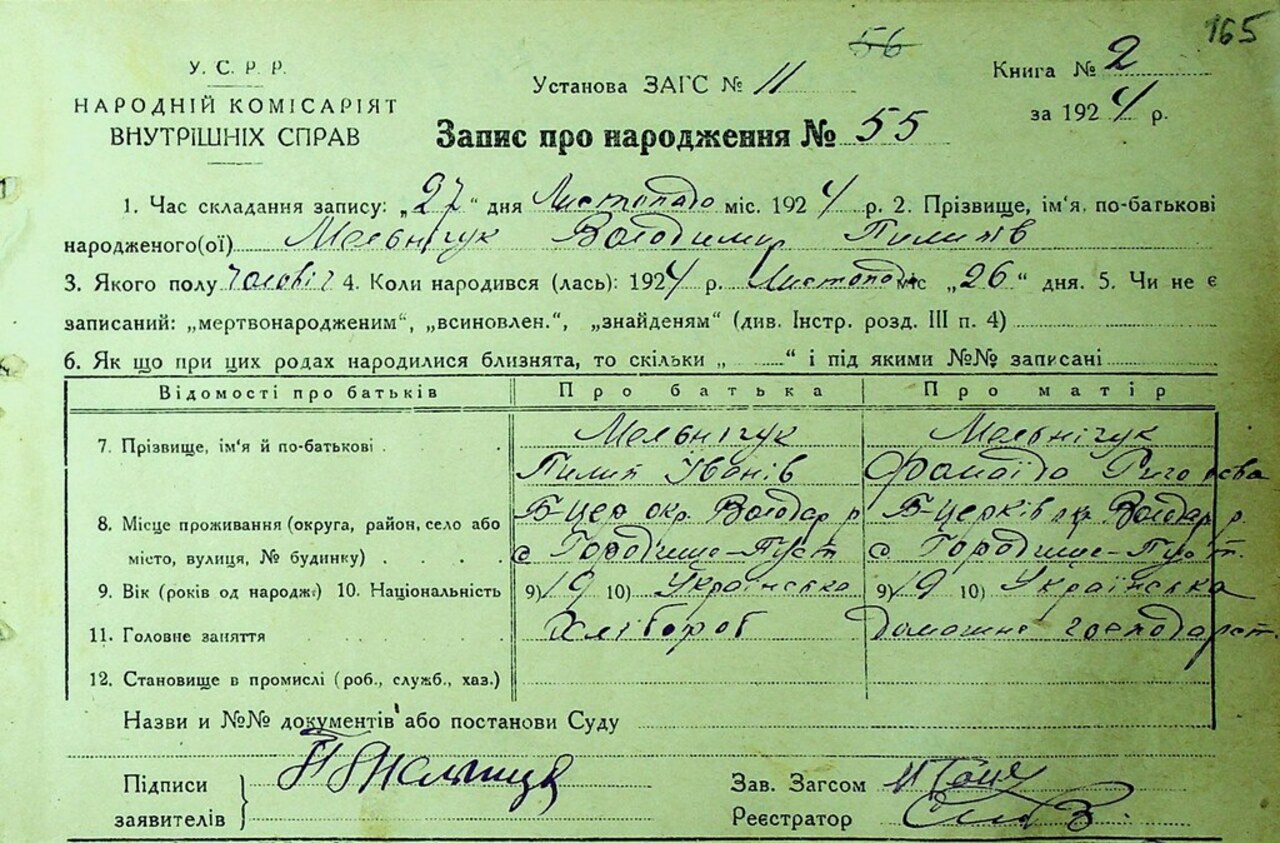 165
56
У. С. Р. Р.
НАРОДНІЙ КОМІСАРІЯТ
ВНУТРІШНІХ СПРАВ
Установа ЗАГС № 11
Книга № 2
за 1924 р.
Запис про народження № 55
1. Час складання запису: „27“ дня Листопадо міс. 1924 р. 2. Прізвище, ім'я, по-батькові
народженого(ої) Мельнічук Володимир Пилипів
3. Якого полу чоловіч 4. Коли народився (лась): 1924 р. Листопад міс „26“ дня. 5. Чи не є
записаний: „мертвонародженим“, „всиновлен.“, „знайденям“ (див. Інстр. розд. III п. 4)
6. Як що при цих родах народилися близнята, то скільки „ “ і під якими №№ записані
Відомості про батьків Про батька Про матір
7. Прізвище, ім'я й по-батькові Мельнічук Мельнічук
Пилип Іванів
8. Місце проживання (округа, район, село або Б-Цер окр. Володар р Б-Церків окр. Володар р.
місто, вулиця, № будинку) с Городище-Пуст с. Городище-Пуст.
9. Вік (років од народж.) 10. Національність 9) 19 10) Українська 9) 19 10) Українська
11. Головне заняття Хлібороб Домашнє господарст.
12. Становище в промислі (роб., служб., хаз.)
Назви и №№ документів або постанови Суду
Підписи
заявителів
Зав. Загсом
Реєстратор